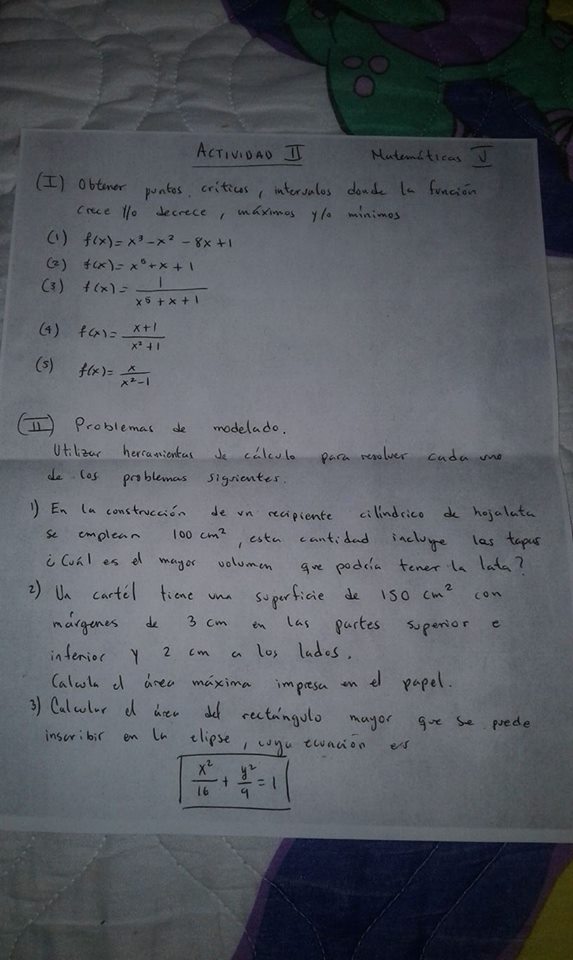 ACTIVIDAD II Matemáticas V
(I) Obtener puntos críticos, intervalos donde la función
crece y/o decrece, máximos y/o mínimos
(1) f(x)=x³-x²-8x+1
(2) f(x)=x⁵+x+1
(3) f(x)= 1/(x⁵+x+1)
(4) f(x)= (x+1)/(x²+1)
(5) f(x)= x/(x²-1)
(II) Problemas de modelado.
Utilizar herramientas de cálculo para resolver cada uno
de los problemas siguientes.
1) En la construcción de un recipiente cilíndrico de hojalata
se emplean 100 cm², esta cantidad incluye las tapas
¿Cuál es el mayor volumen que podría tener la lata?
2) Un cartél tiene una superficie de 150 cm² con
márgenes de 3 cm en las partes superior e
inferior y 2 cm a los lados.
Calcula el área máxima impresa en el papel.
3) Calcular el área del rectángulo mayor que se puede
inscribir en la elipse, cuya ecuación es
x²/16 + y²/9 = 1